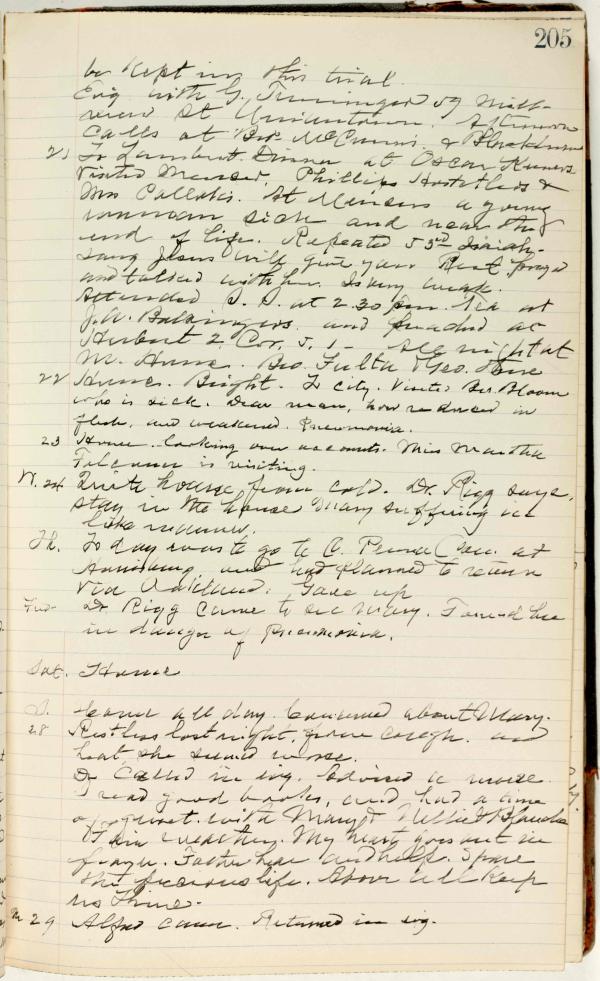 205
be kept in this trial.
Evg with G. of Mill-
view at Uniontown. Afternoon
Calls at Bro. McCunn's & Blackburn
21 To Lambert. Dinner at Oscar
Visited Phillips Hostetlers &
Mrs a young
woman sick and near the
end of life. Repeated 53rd Isaiah.
Sang Jesus will give you Rest prayed
and talked with her. Is very weak.
Attended S. S. at 2.30 pm. Tea at
J. A. and preached at
2 Cor. 5.1 - All night at
M. Horne. Bro. Fulta & Geo. Horne
22 Homes. Bright. To city. Visited Bro. Bloom
who is sick. Dear man, how reduced in
flesh, and weakened. Pneumonia.
23 Home. Looking over accounts. Miss Martha
is visiting.
W. 24 Quite hoarse from cold. Dr. Rigg says,
stay in the house Mary suffering in
like manner.
Th. To day was to go to C. Penna Con. at
and had planned to return
via Oakland. Gave up
Frid. Dr Rigg came to see Mary. Found her
in danger of Pneumonia.
Sat. Home
S. Home all day. Concerned about Mary.
28 Restless last night, grave cough. and
heat, she seemed worse.
Dr Called in evg. Advised a nurse.
I read good books, and had a time
of quiet with Mary & Nellie &
Fair weather. My heart goes out in
prayer. Father hear and help. Spare
this precious life. Above all keep
us Thine.
29 Alfred came. Returned in evg.